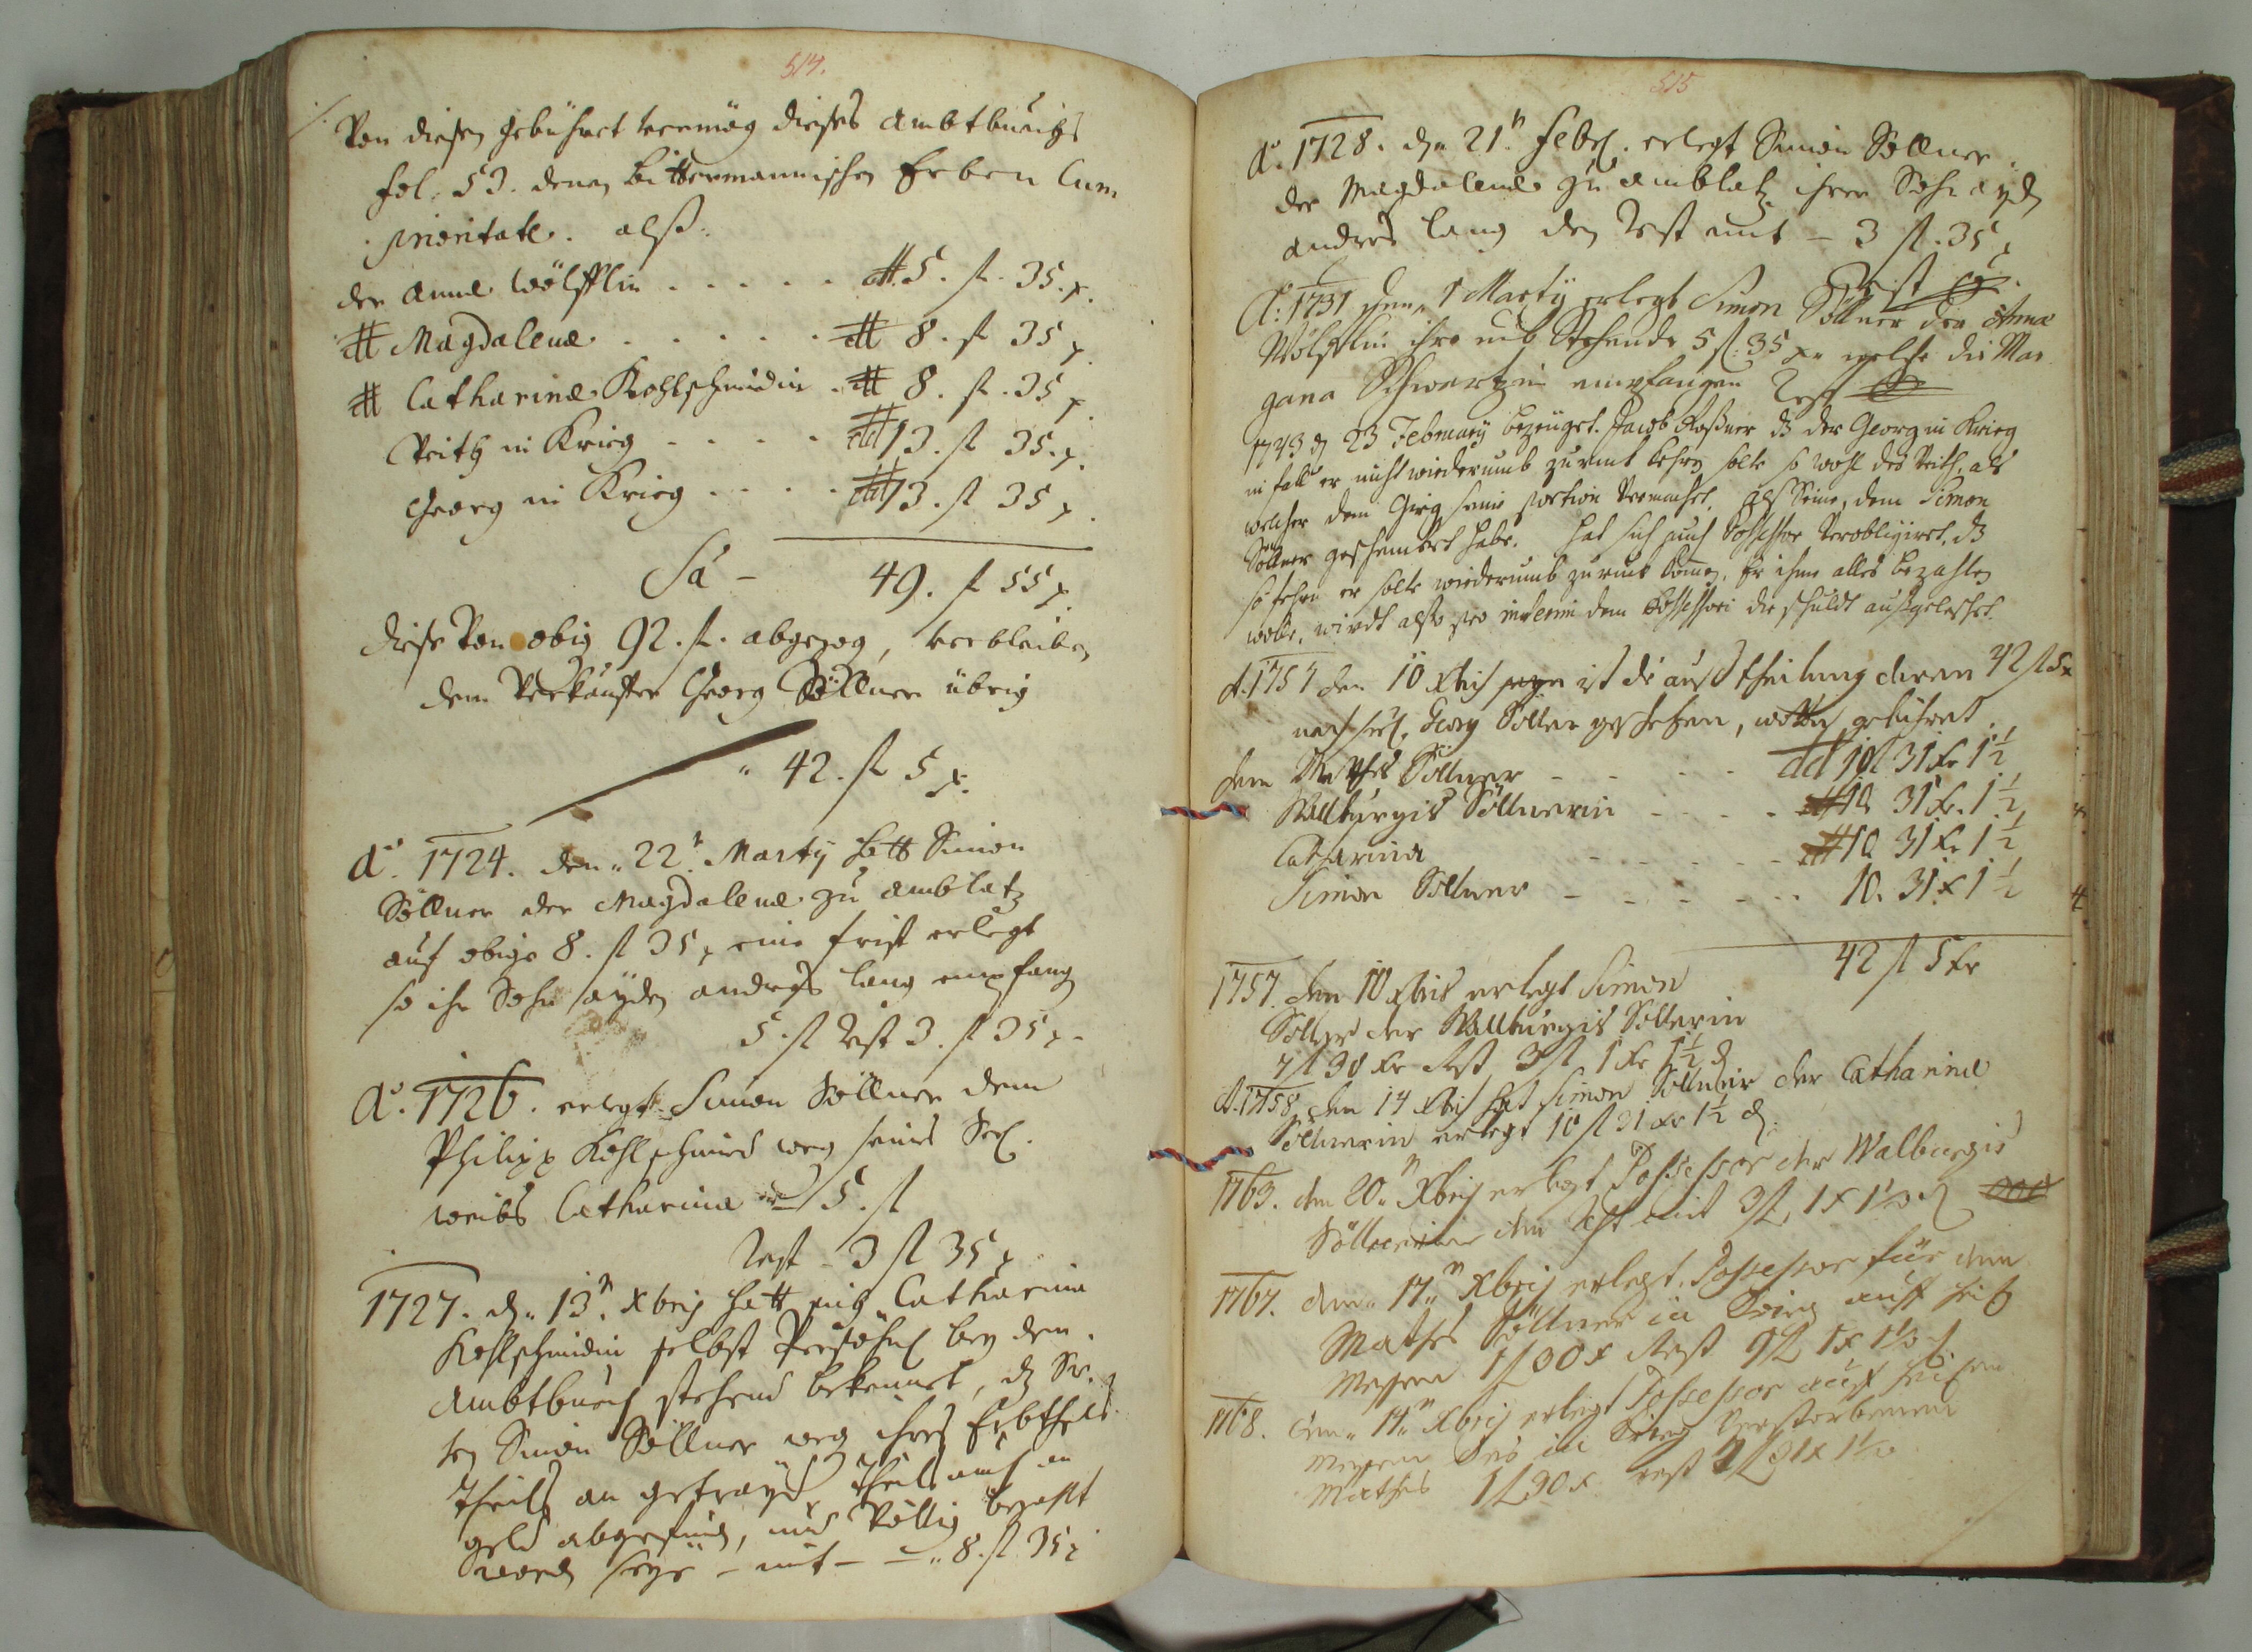 514.
Von diesen gebühret vermög dieses Ambtbuchs
fol. 53. denen Bittermannischen Erben cum
prioritate. alß.
der Anna Wölfflin . . . . . dd 5. fl. 35. x.
dd Magdalena . . . . . dd 8. fl 35 x.
dd Catharina Kohlschmidin . dd 8. fl. 35 x.
Veith in Krieg - - - - dd 13. fl 35. x.
Georg in Krieg . . . . dd 13. fl 35 x.
Sa - 49. fl 55 x.
diese von obig 92. fl. abgezog, verbleiben
dem Verkauffer Georg Söllner übrig
" 42. fl 5 x.
Ao. 1724. den 22n Marty hatt Simon
Söllner der Magdalena zu Amblatz
auf obige 8. fl 35 x eine frist erlegt
so ihr Sohn Andreß lang empfang
5. fl Rest 3. fl 35 x.
Ao. 1726. erlegt Simon Söllner dem
Philipp Kohlschmid weg seines Seel.
weibs Catharina 5. fl
Rest - 3 fl 35 x
1727. d. 13n. Xbris hatt sich Catharina
Kohlschmidin selbst Persöhnl bey dem
Ambtbuch stehend bekennet, dz
Simon Söllner weg ihres Erbtheils
theils an getrayd theils auch an
geld abgefund, und völlig bezahlt
word seye - mit - - " 8. fl 35 x
515
Ao. 1728. den 21n. Febr. erlegt Simon Söllner
der Magdalena zu Amblatz ihren Sohn
Andreß lang den Rest mit - 3 fl. 35 x
Rest
A: 1731 den 1 Marty erlegt Simon Söllner der Anna
Wölfflin ihre stehende 5 fl: 35 x welche die Mar
gana Schwartzin empfangen Rest
1743 d 23 February bezeuget Jacob Roßner dz der Georg in Krieg
in fall er nicht wiederumb zuruck kehren solte so wohl des Veith, als
welcher dem Girg seine portion vermachet, alß Seine, dem Simon
Söllner geschencket habe. hat sich auch Possessor verobligiret, dz
so fehrn er solte wiederumb zuruck komen, Er ihme alles bezahlen
wolle, wirdt also pro interim dem Possessori die schuldt außgeleschet.
A. 1757 den 10 Xbris ist die auß theilung deren 42 fl 5 x
nach Seel. Georg Söllner geschehen, gebühret
dem Mathes Söllner - - - - dd 10 fl 31 xr 1½
Wallburgis Söllnerin - - - - dd 10 31 xr. 1½
Catharina - - - - - - dd 10 31 xr 1½
Simon Söllner - - - - - 10. 31 x 1½
42 fl 5 xr
1757 den 10 Xbris erlegt Simon
Söllner der Wallburgis Söllerin
7 fl 30 xr Rest 3 fl 1 xr 1½ d
A. 1758 den 14 Xbris hat Simon Söllner der Catharina
Söllnerin erlegt 10 fl 31 xr 1½ d.
1763. den 20n Xbris erlegt Possessor der Walburgis
Söllnerin den Rest mit 3 fl, 1 x 1½ d
1767. den 17n Xbris erlegt Possessor für den
Mathes Söllner in Krieg auff heil.
Messen 1 fl 30 x Rest 9 fl 1 x 1½ d.
1768. den 17n Xbris erlegt Possessor auf heilsen
Messen des in Krieg verstorbenen
Mathes 1 fl 30 x. rest 7 fl 31 x 1½